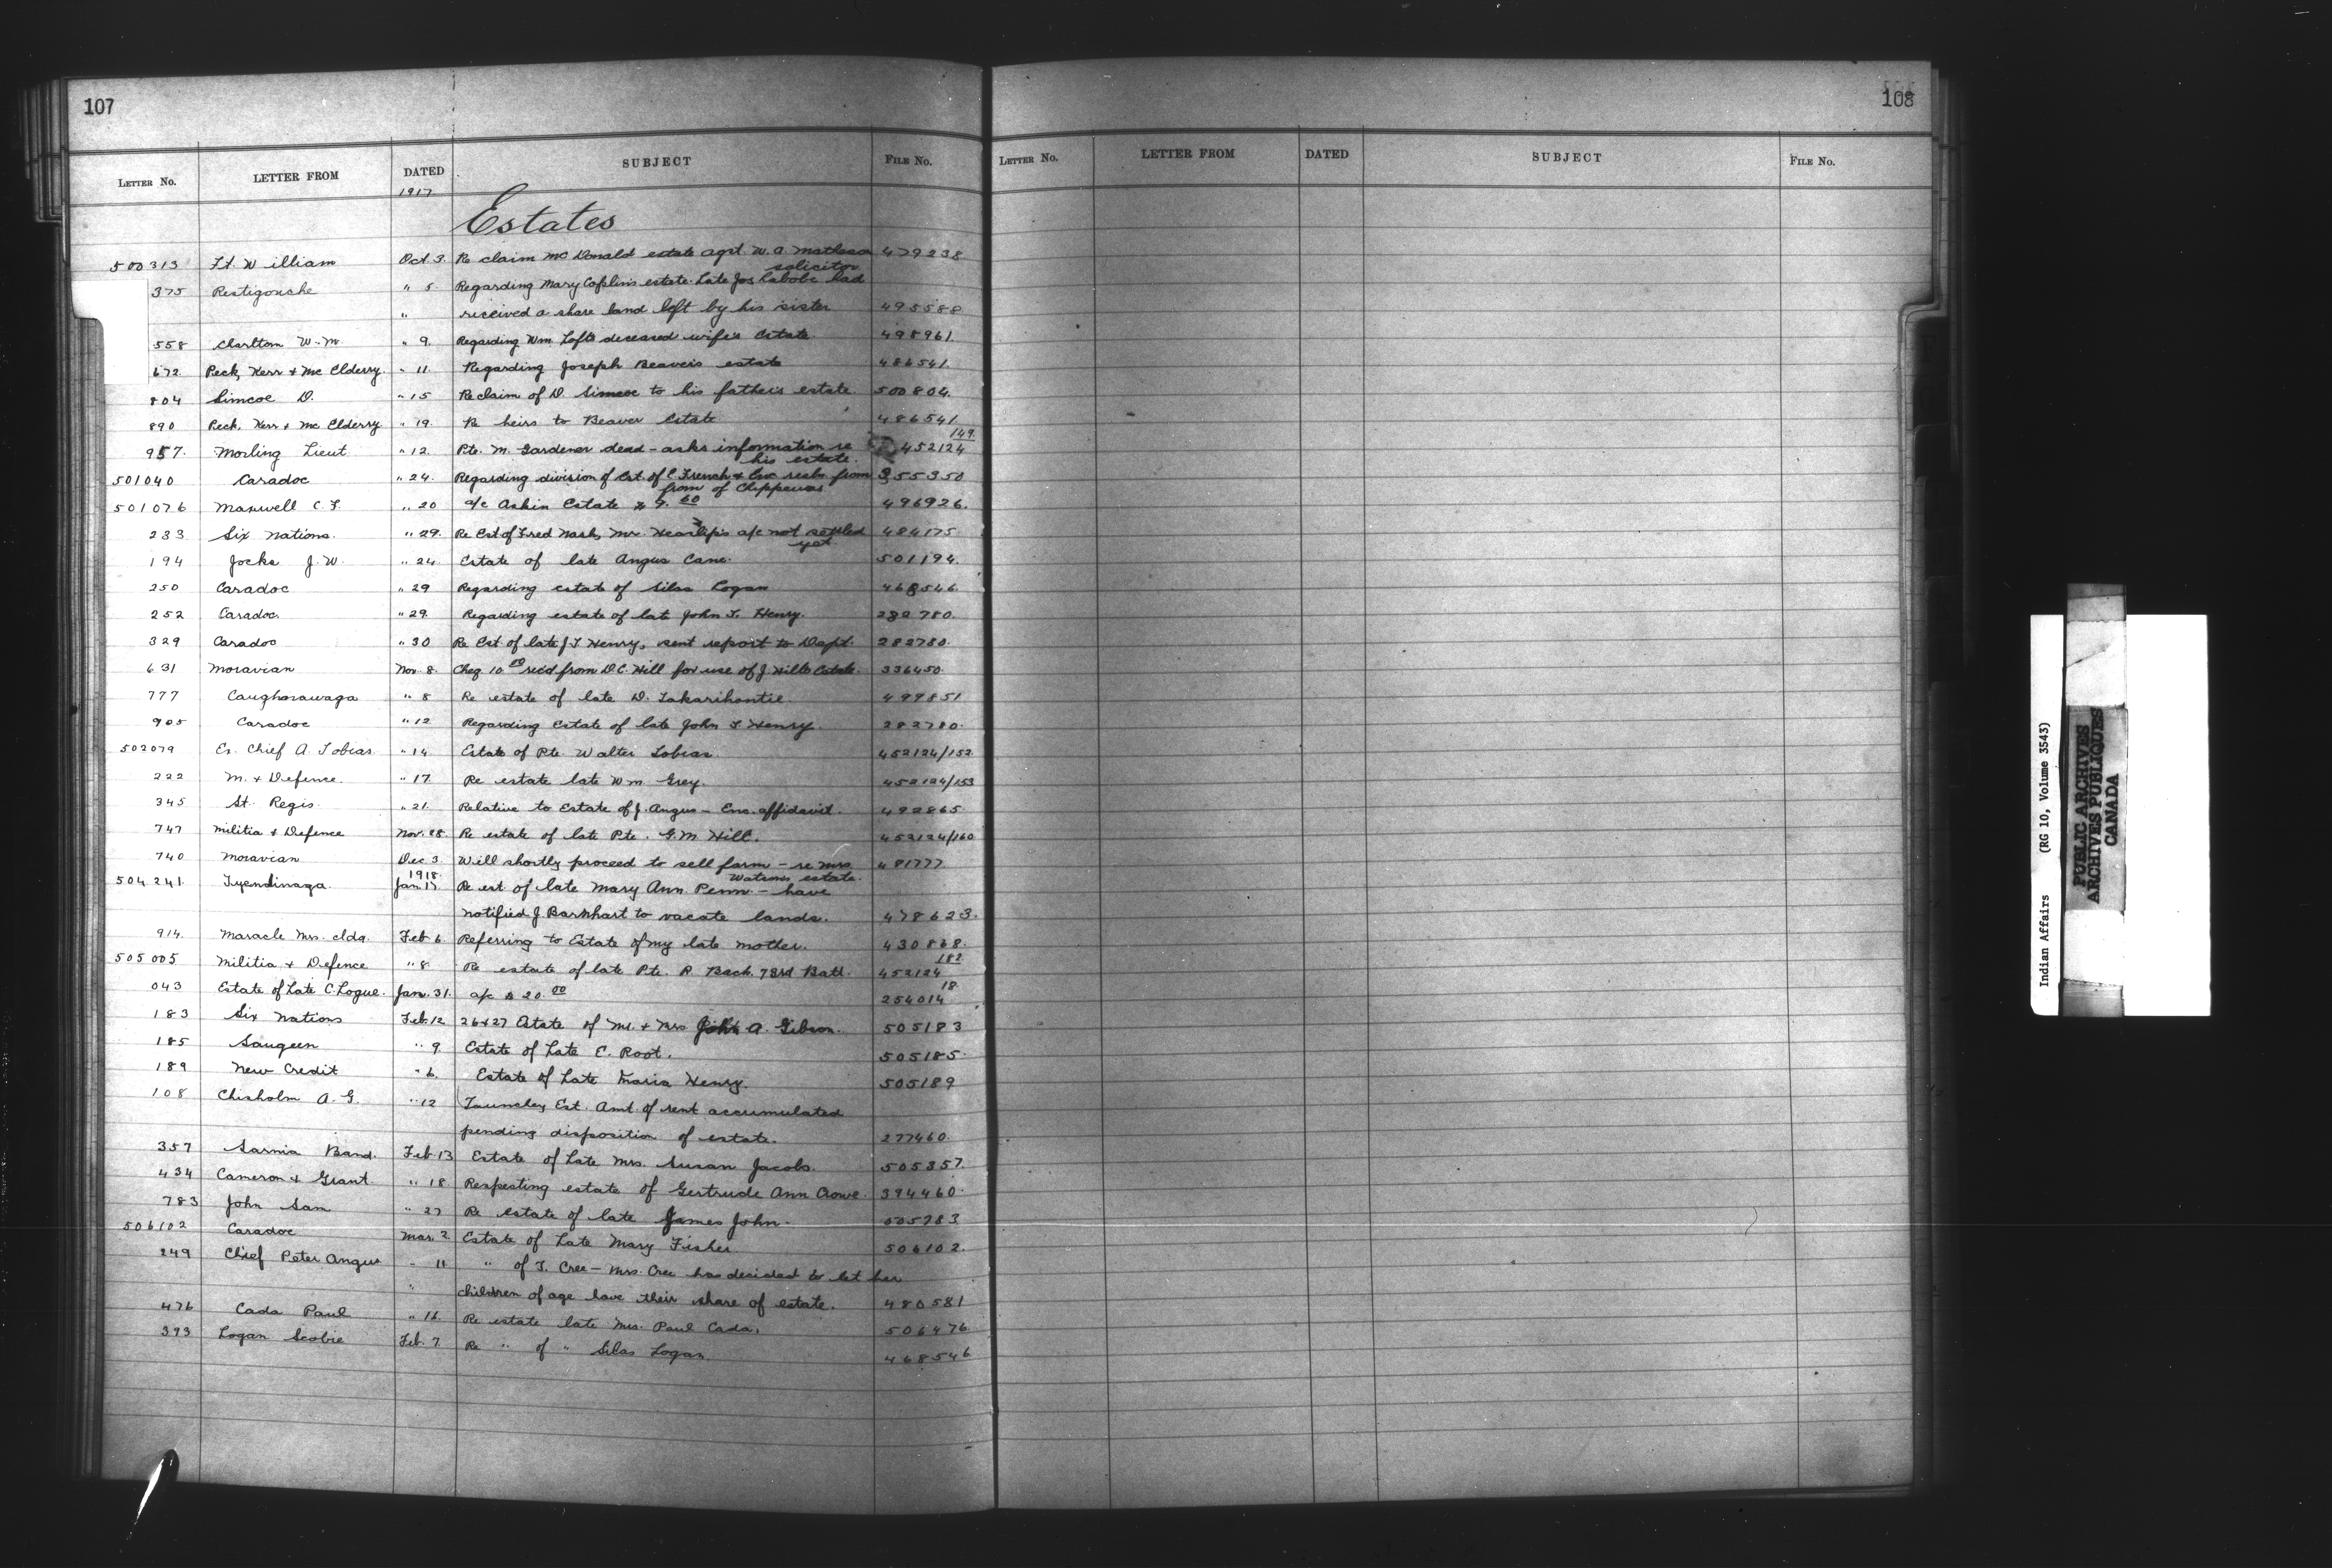 107
LETTER NO. LETTER FROM DATED SUBJECT FILE NO.
1917
Estates
500313 Ft. William Oct 3. Re claim Mc Donald estate agst. W. A. Matheson 479238
solicitor
375 Restigouche " 5 Regarding Mary Coplin's estate. Late Jos Labobe had
" received a share land left by his sister 495588
558 Charlton W. M. " 9. Regarding Wm. Loft's deceased wife's Estate. 498961.
672 Peck, Kerr & Mc Elderry. " 11 Regarding Joseph Beaver's estate 486541.
804 Simcoe D. " 15 Re claim of D. Simcoe to his father's estate. 500804.
890 Peck, Kerr & Mc Elderry " 19. Re heirs to Beaver Estate 486541.
149
957. Morling Lieut. " 12. Pte. M. Gardener dead - asks information re 452124
his estate.
501040 Caradoc " 24. Regarding division of Est. of E. French & Enc resln from 355350
from of Chippewas
501076 Maxwell C. F. " 20 a/c Askin Estate $ 9. 60 496926.
233 Six Nations. " 29. Re Est of Fred Nash, Mr. Heaslip's a/c not settled 484175
yet.
194 Jocks J. W. " 24 Estate of late Angus Cane. 501194.
250 Caradoc " 29 Regarding estate of Silas Logan 468546.
252 Caradoc. " 29. Regarding estate of late John T. Henry. 282780.
329 Caradoc " 30 Re Est. of late J. T Henry, sent report to Dept. 282780.
631 Moravian Nov. 8. Cheq 10 00 rec'd from D. C. Hill for use of J. Hill's Estate. 336450.
777 Caughnawaga " 8 Re estate of late D. Takarihontie. 499851
905 Caradoc " 12 Regarding Estate of late John T. Henry. 282780.
502079 Ex. Chief A. Tobias. " 14 Estate of Pte. Walter Tobias. 452124/152
222 M. & Defence. " 17. Re estate late Wm. Grey. 452124/153
345 St. Regis " 21. Relative to Estate of J. Angus - Enc. affidavit. 492865.
747 Militia & Defence Nov. 28. Re estate of late Pte. G. M. Hill. 452124/160
740 Moravian Dec 3. Will shortly proceed to sell farm - re Mrs 481777.
1918. Watson's estate.
504241. Tyendinaga. Jan 17. Re est. of late Mary Ann Penn. - have
notified J. Barnhart to vacate lands. 478623.
914. Maracle Mrs. Elda. Feb 6. Referring to Estate of my late mother. 430868.
182
505005 Militia & Defence " 8. Re estate of late Pte. R. Back. 73rd Batt. 452124
18
043 Estate of Late C. Logue. Jan. 31. a/c $ 20. 00 254014
183 Six Nations Feb. 12 26 & 27 Estate of Mr. & Mrs John A. Gibson. 505183
185 Saugeen " 9 Estate of Late E. Root. 505185.
189 New Credit " 6. Estate of Late Maria Henry. 505189
108 Chisholm A. G. " 12 Est. Amt. of rent accumulated
pending disposition of estate. 277460.
357 Sarnia Band. Feb 13 Estate of Late Mrs. Susan Jacobs. 505357.
434 Cameron & Grant. " 18 Respecting estate of Gertrude Ann Crowe. 394460.
783 John Sam " 27 Re estate of late James John. 505783
506102 Caradoc Mar. 2 Estate of Late Mary Fisher. 506102.
249 Chief Peter Angus " 11 " of T. Cree - Mrs. Cree has decided to let her
" children of age have their share of estate. 480581
476 Cada Paul " 16. Re estate late Mrs. Paul Cada. 506476
393 Logan Scobie Feb. 7. Re " of " Silas Logan. 468546
108
LETTER NO. LETTER FROM DATED SUBJECT FILE NO.
Indian Affairs (RG 10, Volume 3543)
PUBLIC ARCHIVES
ARCHIVES PUBLIQUES
CANADA